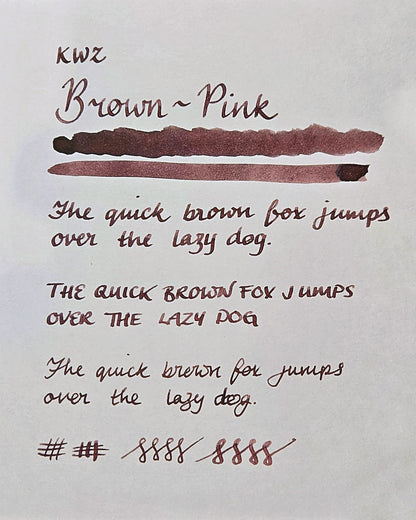 KWZ
Brown ~ Pink
The quick brown fox jumps
over the lazy dog.
THE QUICK BROWN FOX JUMPS
OVER THE LAZY DOG
The quick brown fox jumps
over the lazy dog.